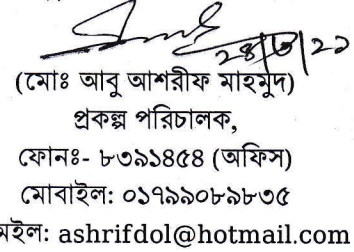 ২৪/৩/২১
(মোঃ আবু আশরীফ মাহমুদ)
প্রকল্প পরিচালক,
ফোনঃ- ৮৩৯১৪৫৪ (অফিস)
মোবাইল: ০১৭৯৯০৮৯৮৩৫
মইল: ashrifdol@hotmail.com